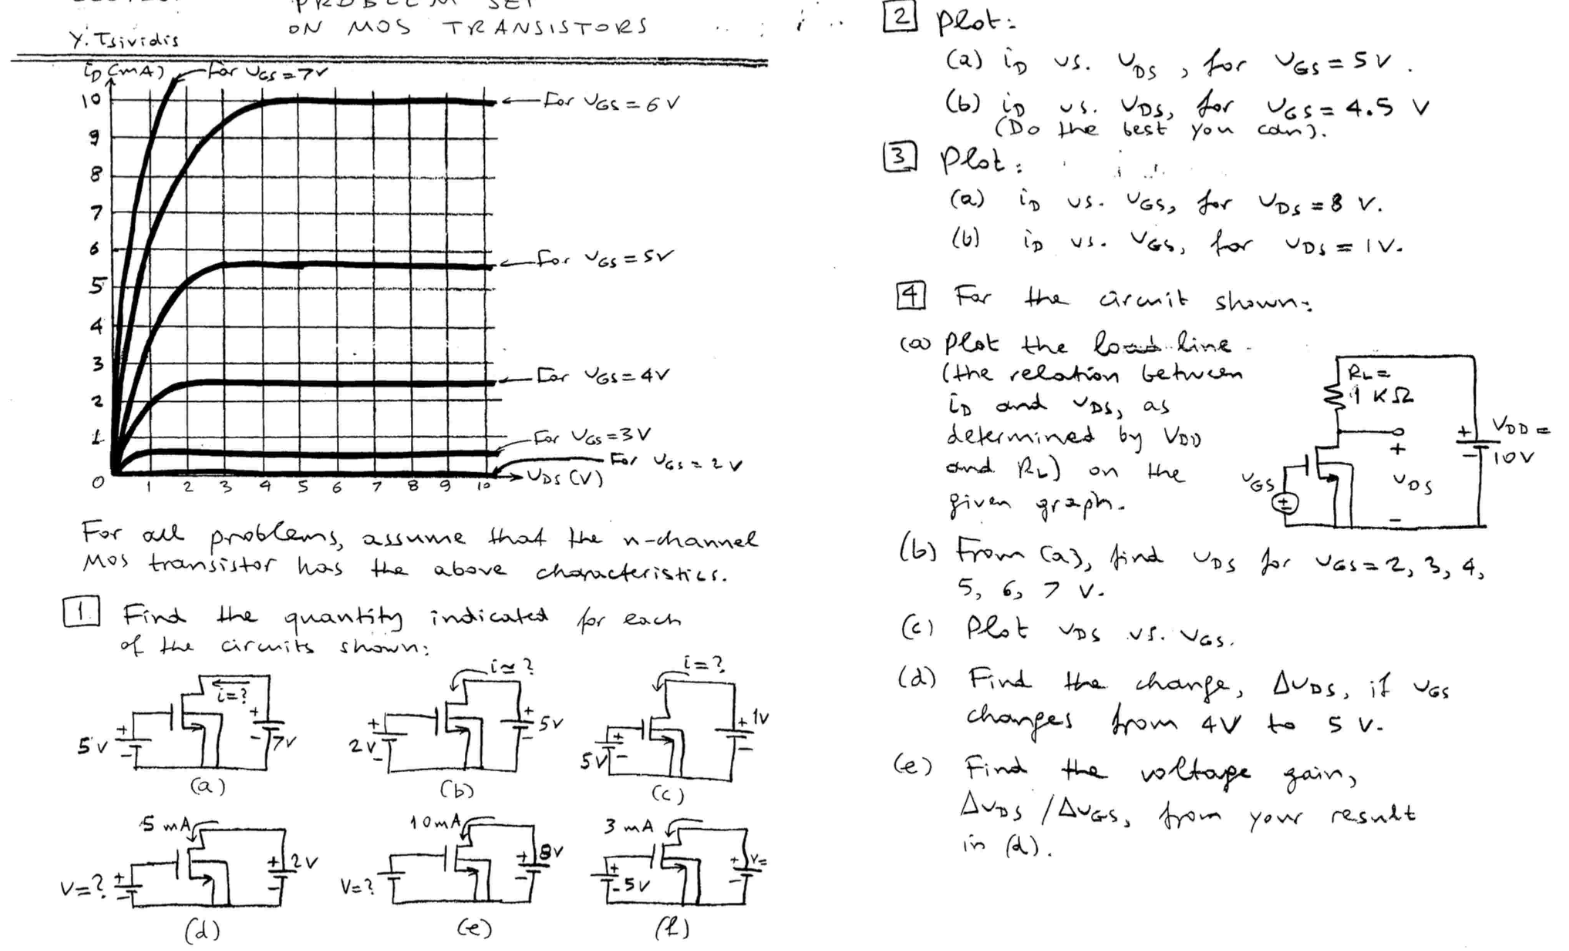 PROBLEM SET
ON MOS TRANSISTORS
Y. Tsividis
iD (mA)
For vGS = 7V
10
For vGS = 6 V
9
8
7
6
For vGS = 5V
5
4
3
For vGS = 4V
2
1
For vGS = 3V
For vGS = 2 V
0 1 2 3 4 5 6 7 8 9 10
vDS (V)
For all problems, assume that the n-channel
MOS transistor has the above characteristics.
1 Find the quantity indicated for each
of the circuits shown:
i=?
5V
+
-
+
-
7V
(a)
i≃?
2V
+
-
+
-
5V
(b)
i=?
5V
+
-
+
-
1V
(c)
5 mA
V=?
+
-
+
-
2V
(d)
10mA
V=?
+
-
8V
(e)
3 mA
+
-
5V
+
-
V=
(f)
2 Plot:
(a) iD vs. vDS, for vGS = 5V.
(b) iD vs. vDS, for vGS = 4.5 V
(Do the best you can).
3 Plot:
(a) iD vs. vGS, for vDS = 8 V.
(b) iD vs. vGS, for vDS = 1V.
4 For the circuit shown:
(a) Plot the load line
(the relation between
iD and vDS, as
determined by VDD
and RL) on the
given graph.
RL =
1 KΩ
vGS
+
-
+
vDS
-
+
-
VDD =
10V
(b) From (a), find vDS for vGS = 2, 3, 4,
5, 6, 7 V.
(c) Plot vDS vs. vGS.
(d) Find the change, ΔvDS, if vGS
changes from 4V to 5 V.
(e) Find the voltage gain,
ΔvDS /ΔvGS, from your result
in (d).